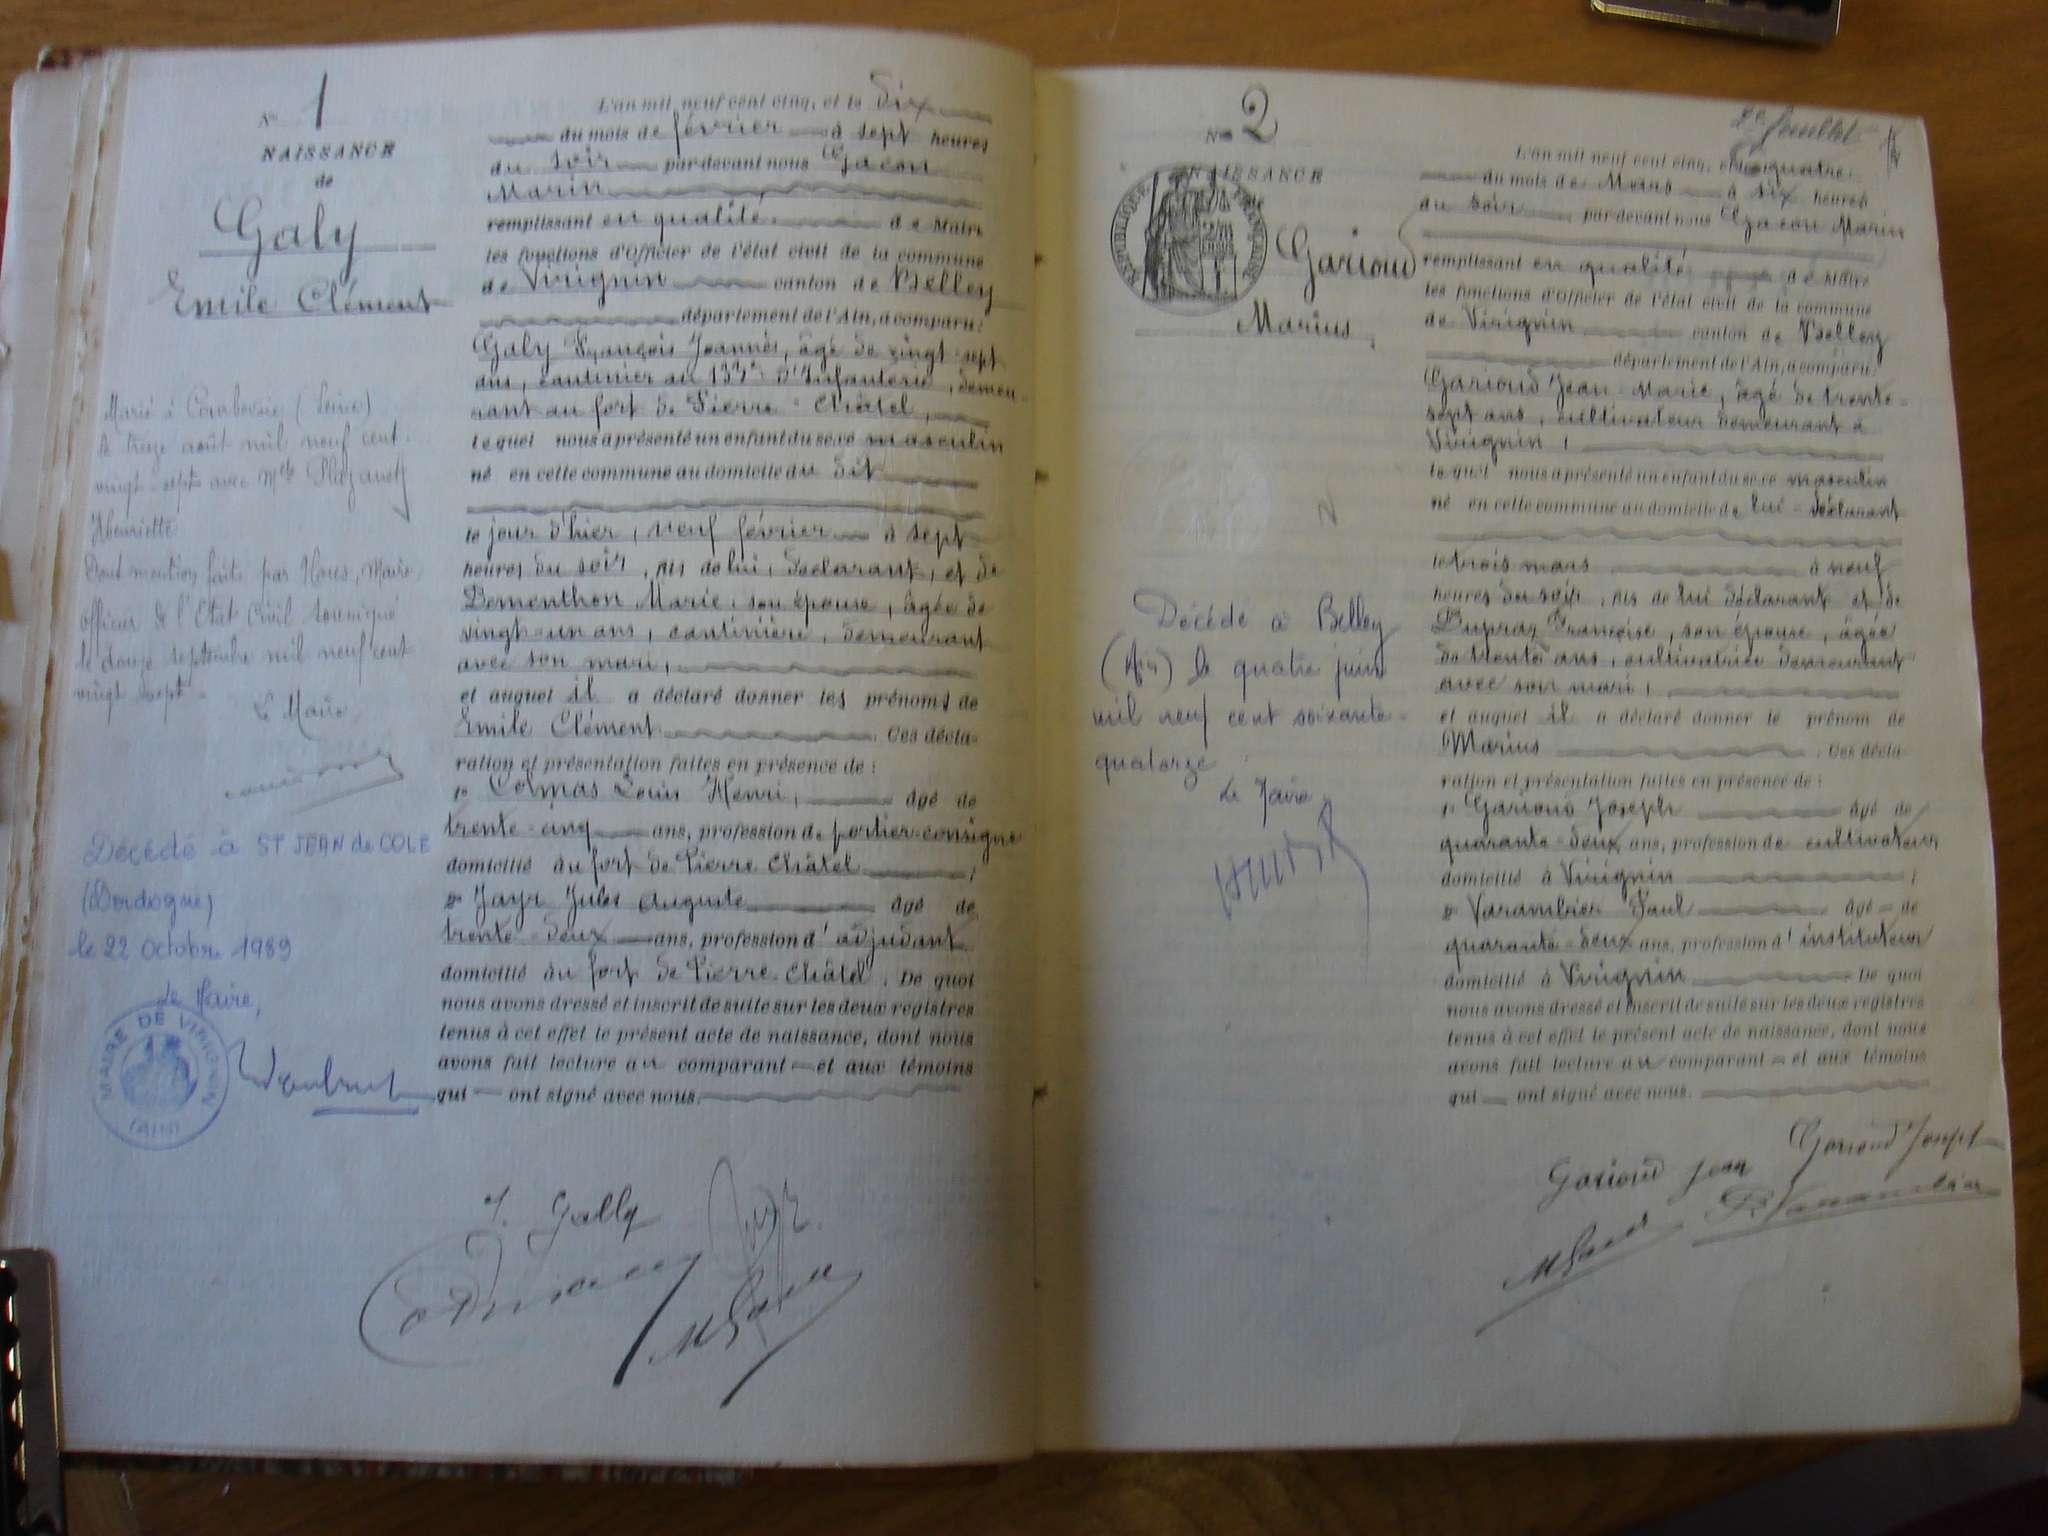 N° 1
NAISSANCE
de
Galy
Emile Clément
Marié à Courbevoie (Seine)
le treize août mil neuf cent
vingt-sept avec Mlle
Henriette
Dont mention faite par Nous, Maire,
officier de l'Etat Civil soussigné
le douze septembre mil neuf cent
vingt sept.
Le Maire
Décédé à ST JEAN de COLE
(Dordogne)
le 22 Octobre 1989
Le Maire,
MAIRIE DE VIRIGNIN
(AIN)
L'an mil neuf cent cinq, et le Dix
du mois de février à sept heures
du soir par devant nous Gacon
Marin
remplissant en qualité de Maire
les fonctions d'Officier de l'état civil de la commune
de Virignin canton de Belley
département de l'Ain, a comparu:
Galy François Joannès, âgé de vingt-sept
ans, cantinier au 133e d'Infanterie, demeu-
rant au fort de Pierre-Châtel,
lequel nous a présenté un enfant du sexe masculin
né en cette commune au domicile du dit
le jour d'hier, neuf février à sept
heures du soir, fils de lui, déclarant, et de
Dementhon Marie, son épouse, âgée de
vingt-un ans, cantinière, demeurant
avec son mari,
et auquel il a déclaré donner les prénoms de
Emile Clément. Ces décla-
ration et présentation faites en présence de:
1° Colmas Louis Henri, âgé de
trente-cinq ans, profession de portier-consigne
domicilié au fort de Pierre Châtel;
2° Jayr Jules Auguste âgé de
trente-deux ans, profession d'adjudant
domicilié au fort de Pierre-Châtel. De quoi
nous avons dressé et inscrit de suite sur les deux registres
tenus à cet effet le présent acte de naissance, dont nous
avons fait lecture au comparant et aux témoins
qui ont signé avec nous.
J. Gally
M Gacon
2e feuillet
N° 2
NAISSANCE
de
RÉPUBLIQUE FRANÇAISE
Garioud
Marius
Décédé à Belley
(Ain) le quatre juin
mil neuf cent soixante-
quatorze
Le Maire
L'an mil neuf cent cinq, et le quatre
du mois de Mars à six heures
du soir par devant nous Gacon Marin
remplissant en qualité de Maire
les fonctions d'Officier de l'état civil de la commune
de Virignin canton de Belley
département de l'Ain, a comparu:
Garioud Jean-Marie, âgé de trente-
sept ans, cultivateur demeurant à
Virignin,
lequel nous a présenté un enfant du sexe masculin
né en cette commune au domicile de lui-déclarant
le trois mars à neuf
heures du soir, fils de lui déclarant et de
Dupraz Françoise, son épouse, âgée
de trente ans, cultivatrice demeurant
avec son mari,
et auquel il a déclaré donner le prénom de
Marius. Ces décla-
ration et présentation faites en présence de:
1° Garioud Joseph âgé de
quarante-deux ans, profession de cultivateur
domicilié à Virignin;
2° Varambier Paul âgé de
quarante-deux ans, profession d'instituteur
domicilié à Virignin. De quoi
nous avons dressé et inscrit de suite sur les deux registres
tenus à cet effet le présent acte de naissance, dont nous
avons fait lecture au comparant et aux témoins
qui ont signé avec nous.
Garioud Joseph
Garioud Jean
P. Varambier
M Gacon